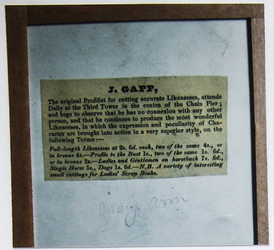 J. GAPP,
The original Profilist for cutting accurate Likenesses, attends
Daily at the Third Tower in the centre of the Chain Pier;
and begs to observe that he has no connexion with any other
person, and that he continues to produce the most wonderful
Likenesses, in which the expression and peculiarity of Cha-
racter are brought into action in a very superior style, on the
following Terms:—
Full-length Likenesses at 2s. 6d. each, two of the same 4s., or
in bronze 4s.—Profile to the Bust 1s., two of the same 1s. 6d.,
or in bronze 2s.—Ladies and Gentlemen on horseback 7s. 6d.,
Single Horse 5s., Dogs 1s. 6d.—N.B. A variety of interesting
small cuttings for Ladies' Scrap Books.
Mary Ann